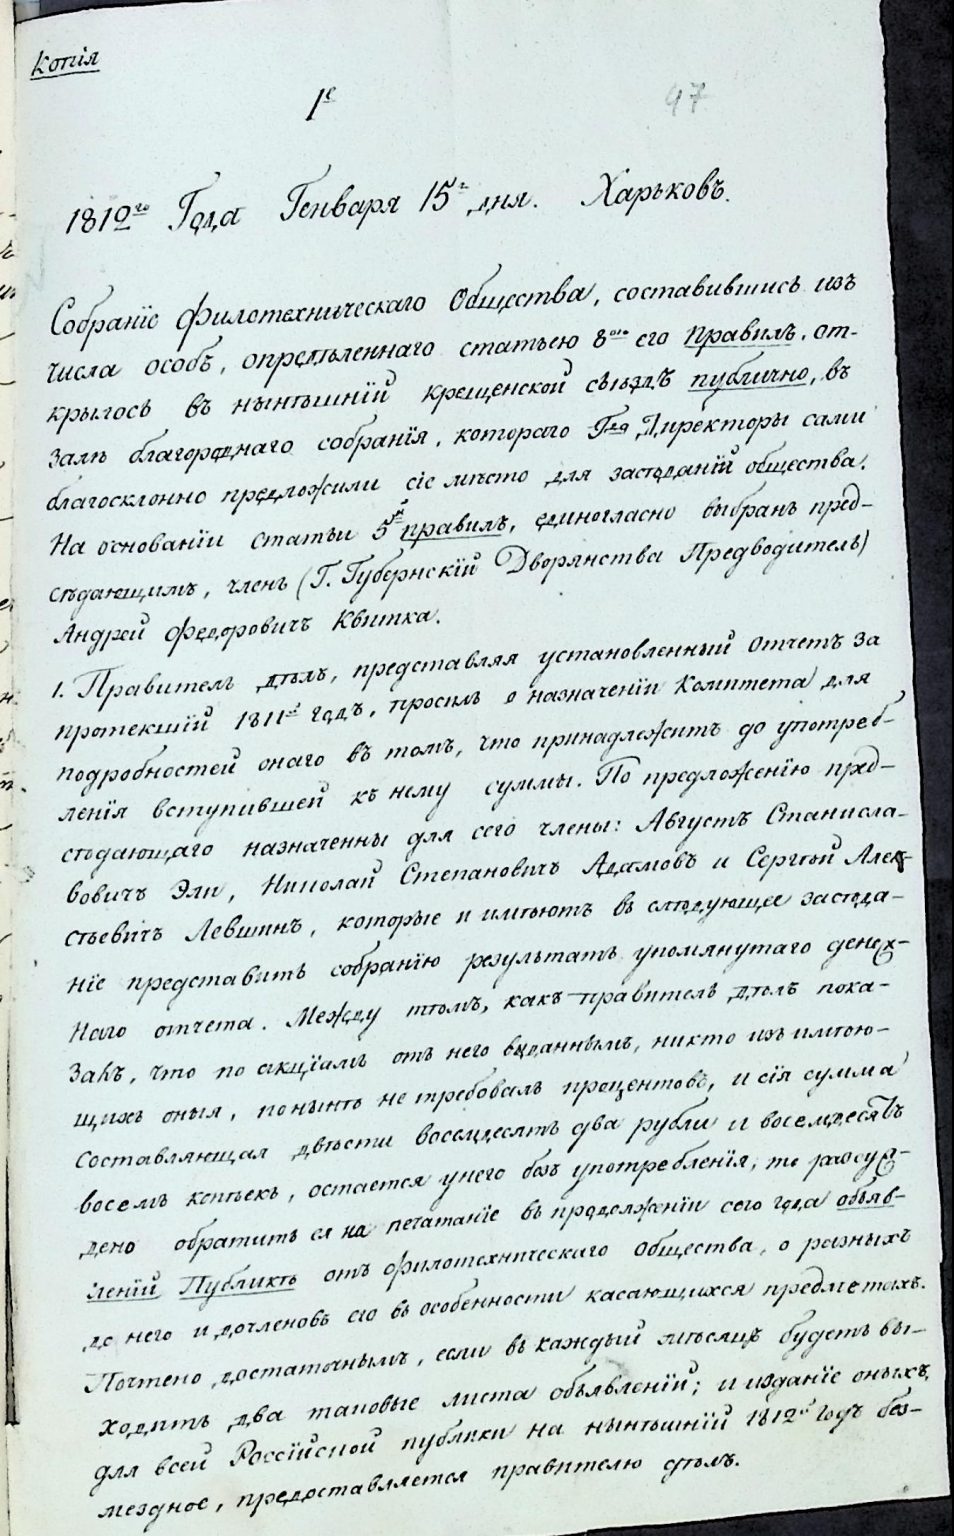 Копія
1е
97
1812го Года Генваря 15г дня. Харьковъ.
Собраніе Филотехническаго Общества, составившись изъ
числа особъ, опредѣленнаго статьею 8ою его правилъ, от-
крылось въ нынѣшній крещенской съѣздъ публично, въ
залѣ благороднаго собранія, котораго Гда Директоры сами
благосклонно предложили сіе мѣсто для засѣданій общества.
На основаніи статьи 5й правилъ, единогласно выбранъ пред-
сѣдающимъ, членъ (Г. Губернскій Дворянства Предводитель)
Андрей Федоровичъ Квитка.
1. Правитель дѣлъ, представляя установленный отчетъ за
протекшій 1811й годъ, просилъ о назначеніи Комитета для
подробностей онаго въ томъ, что принадлежитъ до употреб-
ленія вступившей къ нему суммы. По предложенію пред-
сѣдающаго назначенны для сего члены: Августъ Станисла-
вовичъ Эли, Николай Степановичъ Адамовъ и Сергѣй Алек-
сѣевичъ Левшинъ, которые и имѣютъ въ слѣдующее засѣда-
ніе представить собранію результатъ упомянутаго денеж-
наго отчета. Между тѣмъ, какъ правитель дѣлъ пока-
залъ, что по акціямъ отъ него выданнымъ, никто изъ имѣю-
щихъ оныя, понынѣ не требовалъ процентовъ, и сія сумма
составляющая двѣсти восемдесятъ два рубли и восемдесятъ
восемъ копѣекъ, остается у него безъ употребленія, то разсуж-
дено обратить ея на печатаніе въ продолженіи сего года объяв-
леній Публикѣ отъ Филотехническаго Общества, о разныхъ
до него и дочленовъ его въ особенности касающихся предметахъ.
Почтено достаточнымъ, если въ каждый мѣсяцъ будетъ вы-
ходить два таковые листа объявленій; и изданіе оныхъ,
для всей Россійской публики на нынѣшній 1812й годъ без-
мездное, предоставляется правителю дѣлъ.